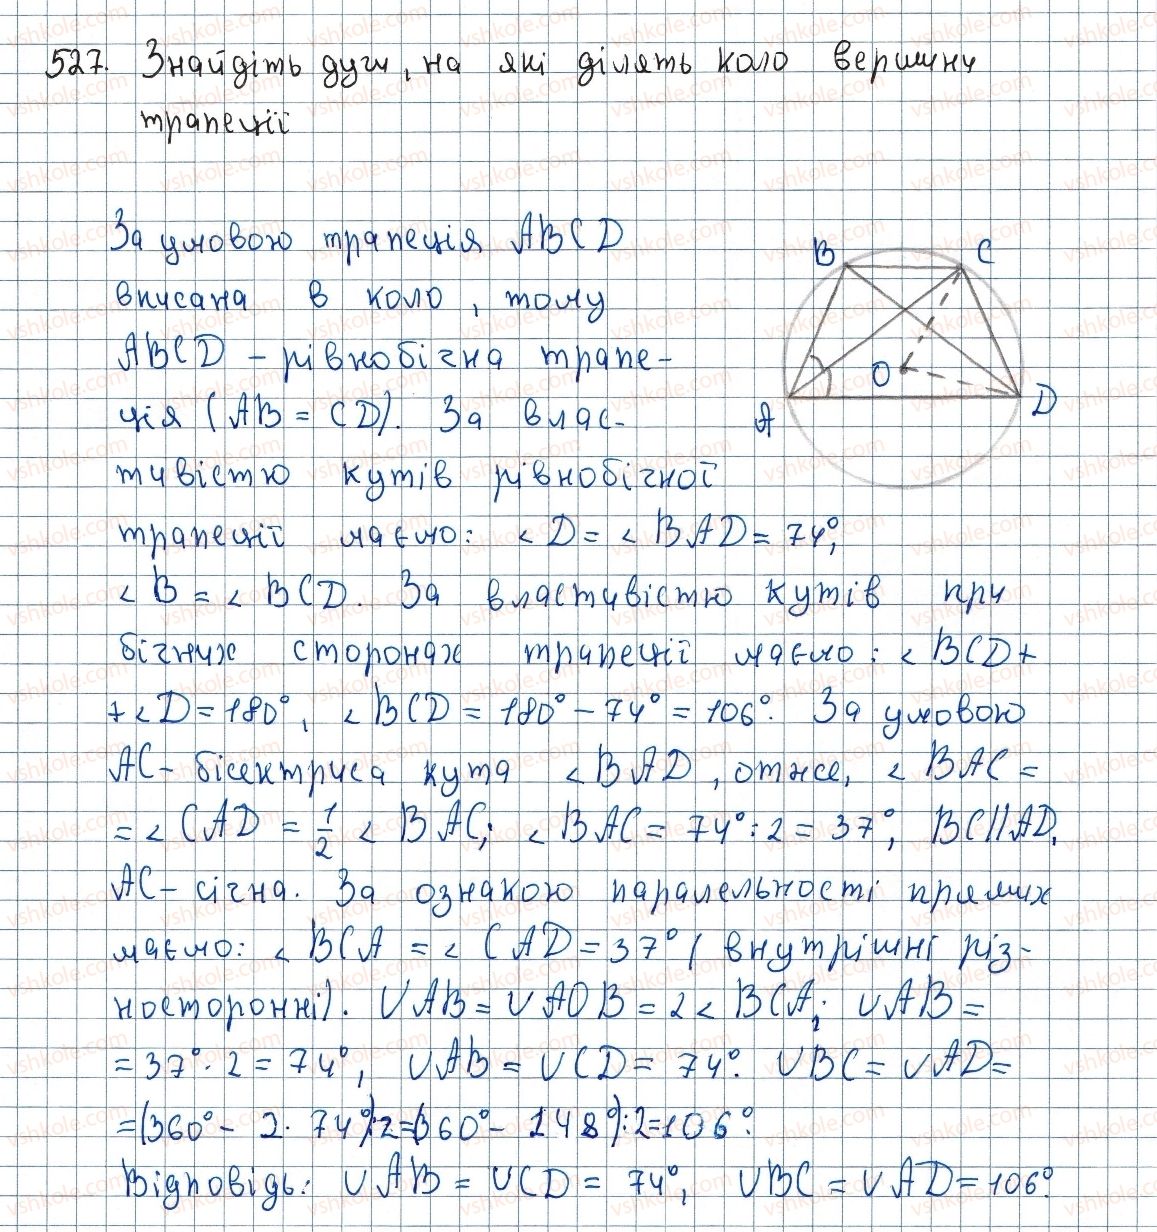 527. Знайдіть дуги, на які ділять коло вершини
трапеції
За умовою трапеція ABCD
вписана в коло, тому
ABCD - рівнобічна трапе-
ція (AB = CD). За влас-
тивістю кутів рівнобічної
трапеції маємо: ∠D = ∠BAD = 74°,
∠B = ∠BCD. За властивістю кутів при
бічних сторонах трапеції маємо: ∠BCD +
+ ∠D = 180°, ∠BCD = 180° - 74° = 106°. За умовою
AC - бісектриса кута ∠BAD, отже, ∠BAC =
= ∠CAD = 1/2 ∠BAC; ∠BAC = 74° : 2 = 37°, BC || AD,
AC - січна. За ознакою паралельності прямих
маємо: ∠BCA = ∠CAD = 37° (внутрішні різ-
носторонні). ∪AB = ∪AOB = 2∠BCA; ∪AB =
= 37° · 2 = 74°, ∪AB = ∪CD = 74°. ∪BC = ∪AD =
= (360° - 2 · 74°) : 2 = (360° - 148°) : 2 = 106°.
Відповідь: ∪AB = ∪CD = 74°, ∪BC = ∪AD = 106°.
B C
O
A D
vshkole.com